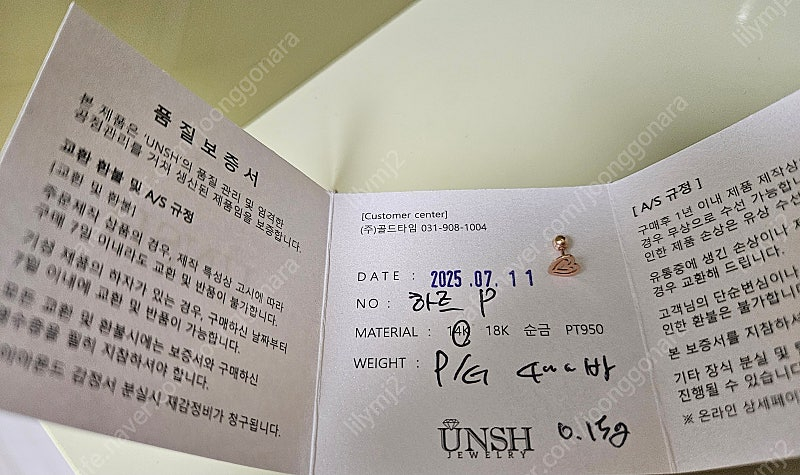 품질보증서
본 제품은 'UNSH'의 품질 관리 및 엄격한
공정관리를 거쳐 생산된 제품임을 보증합니다.
교환 환불 및 A/S 규정
[교환 및 환불]
주문제작 상품의 경우, 제작 특성상 고시에 따라
구매 7일 이내라도 교환 및 반품이 불가합니다.
기성 제품의 하자가 있는 경우, 구매하신 날짜부터
7일 이내에 교환 및 반품이 가능합니다.
모든 교환 및 환불시에는 보증서와 구매하신
영수증을 필히 지참하셔야 합니다.
다이아몬드 감정서 분실시 재감정비가 청구됩니다.
[Customer center]
(주)골드타임 031-908-1004
DATE : 2025.07.11
NO : 하르 P
MATERIAL : 14K 18K 순금 PT950
WEIGHT : P/G
UNSH
JEWELRY
0.15g
[A/S 규정]
구매후 1년 이내 제품 제작상
경우 무상으로 수선 가능합니
인한 제품 손상은 유상 수선
유통중에 생긴 손상이나
경우 교환해 드립니다.
고객님의 단순변심이나
인한 환불은 불가합니다
본 보증서를 지참하셔
기타 장식 분실 및
진행될 수 있습니다
※ 온라인 상세페이
lilymj2
cafe.naver.com/joonggonara